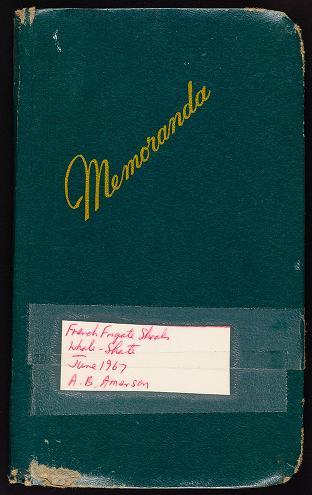 Memoranda
French Frigate Shoals
Whale-Skate
June 1967
A.B. Amerson